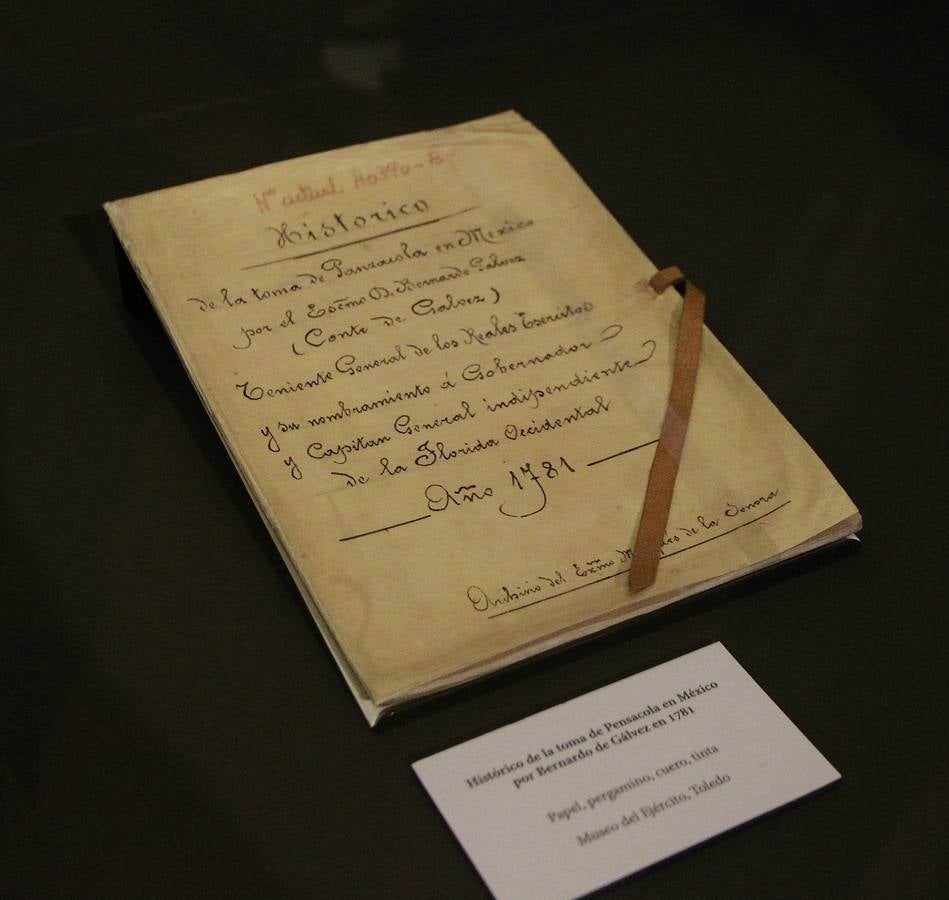 Nº actual 40390-B
Historico
de la toma de Panzacola en Mexico
por el Excmo D. Bernardo Galvez
(Conte de Galvez)
Teniente General de los Reales Exercitos
y su nombramiento á Gobernador
y Capitan General indipendiente
de la Florida Occidental
Año 1781
Archivio del Exmo de la Sonora
Histórico de la toma de Pensacola en México
por Bernardo de Gálvez en 1781
Papel, pergamino, cuero, tinta
Museo del Ejército, Toledo